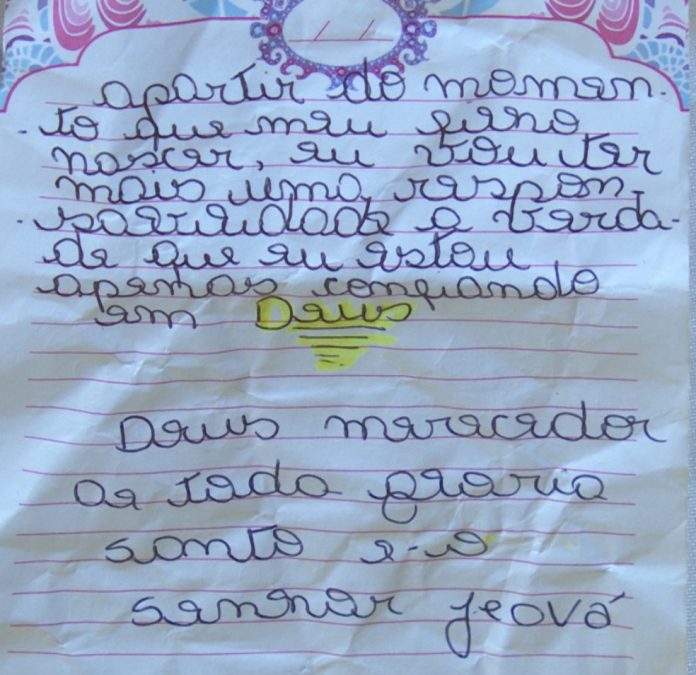 / /
apartir do momen-
-to que meu filho
nascer, eu vou ter
mais uma respon-
-sabilidade e verda-
de que eu estou
apenas confiando
em Deus
Deus merecedor
de toda gloria
santo e-o
senhor Jeová